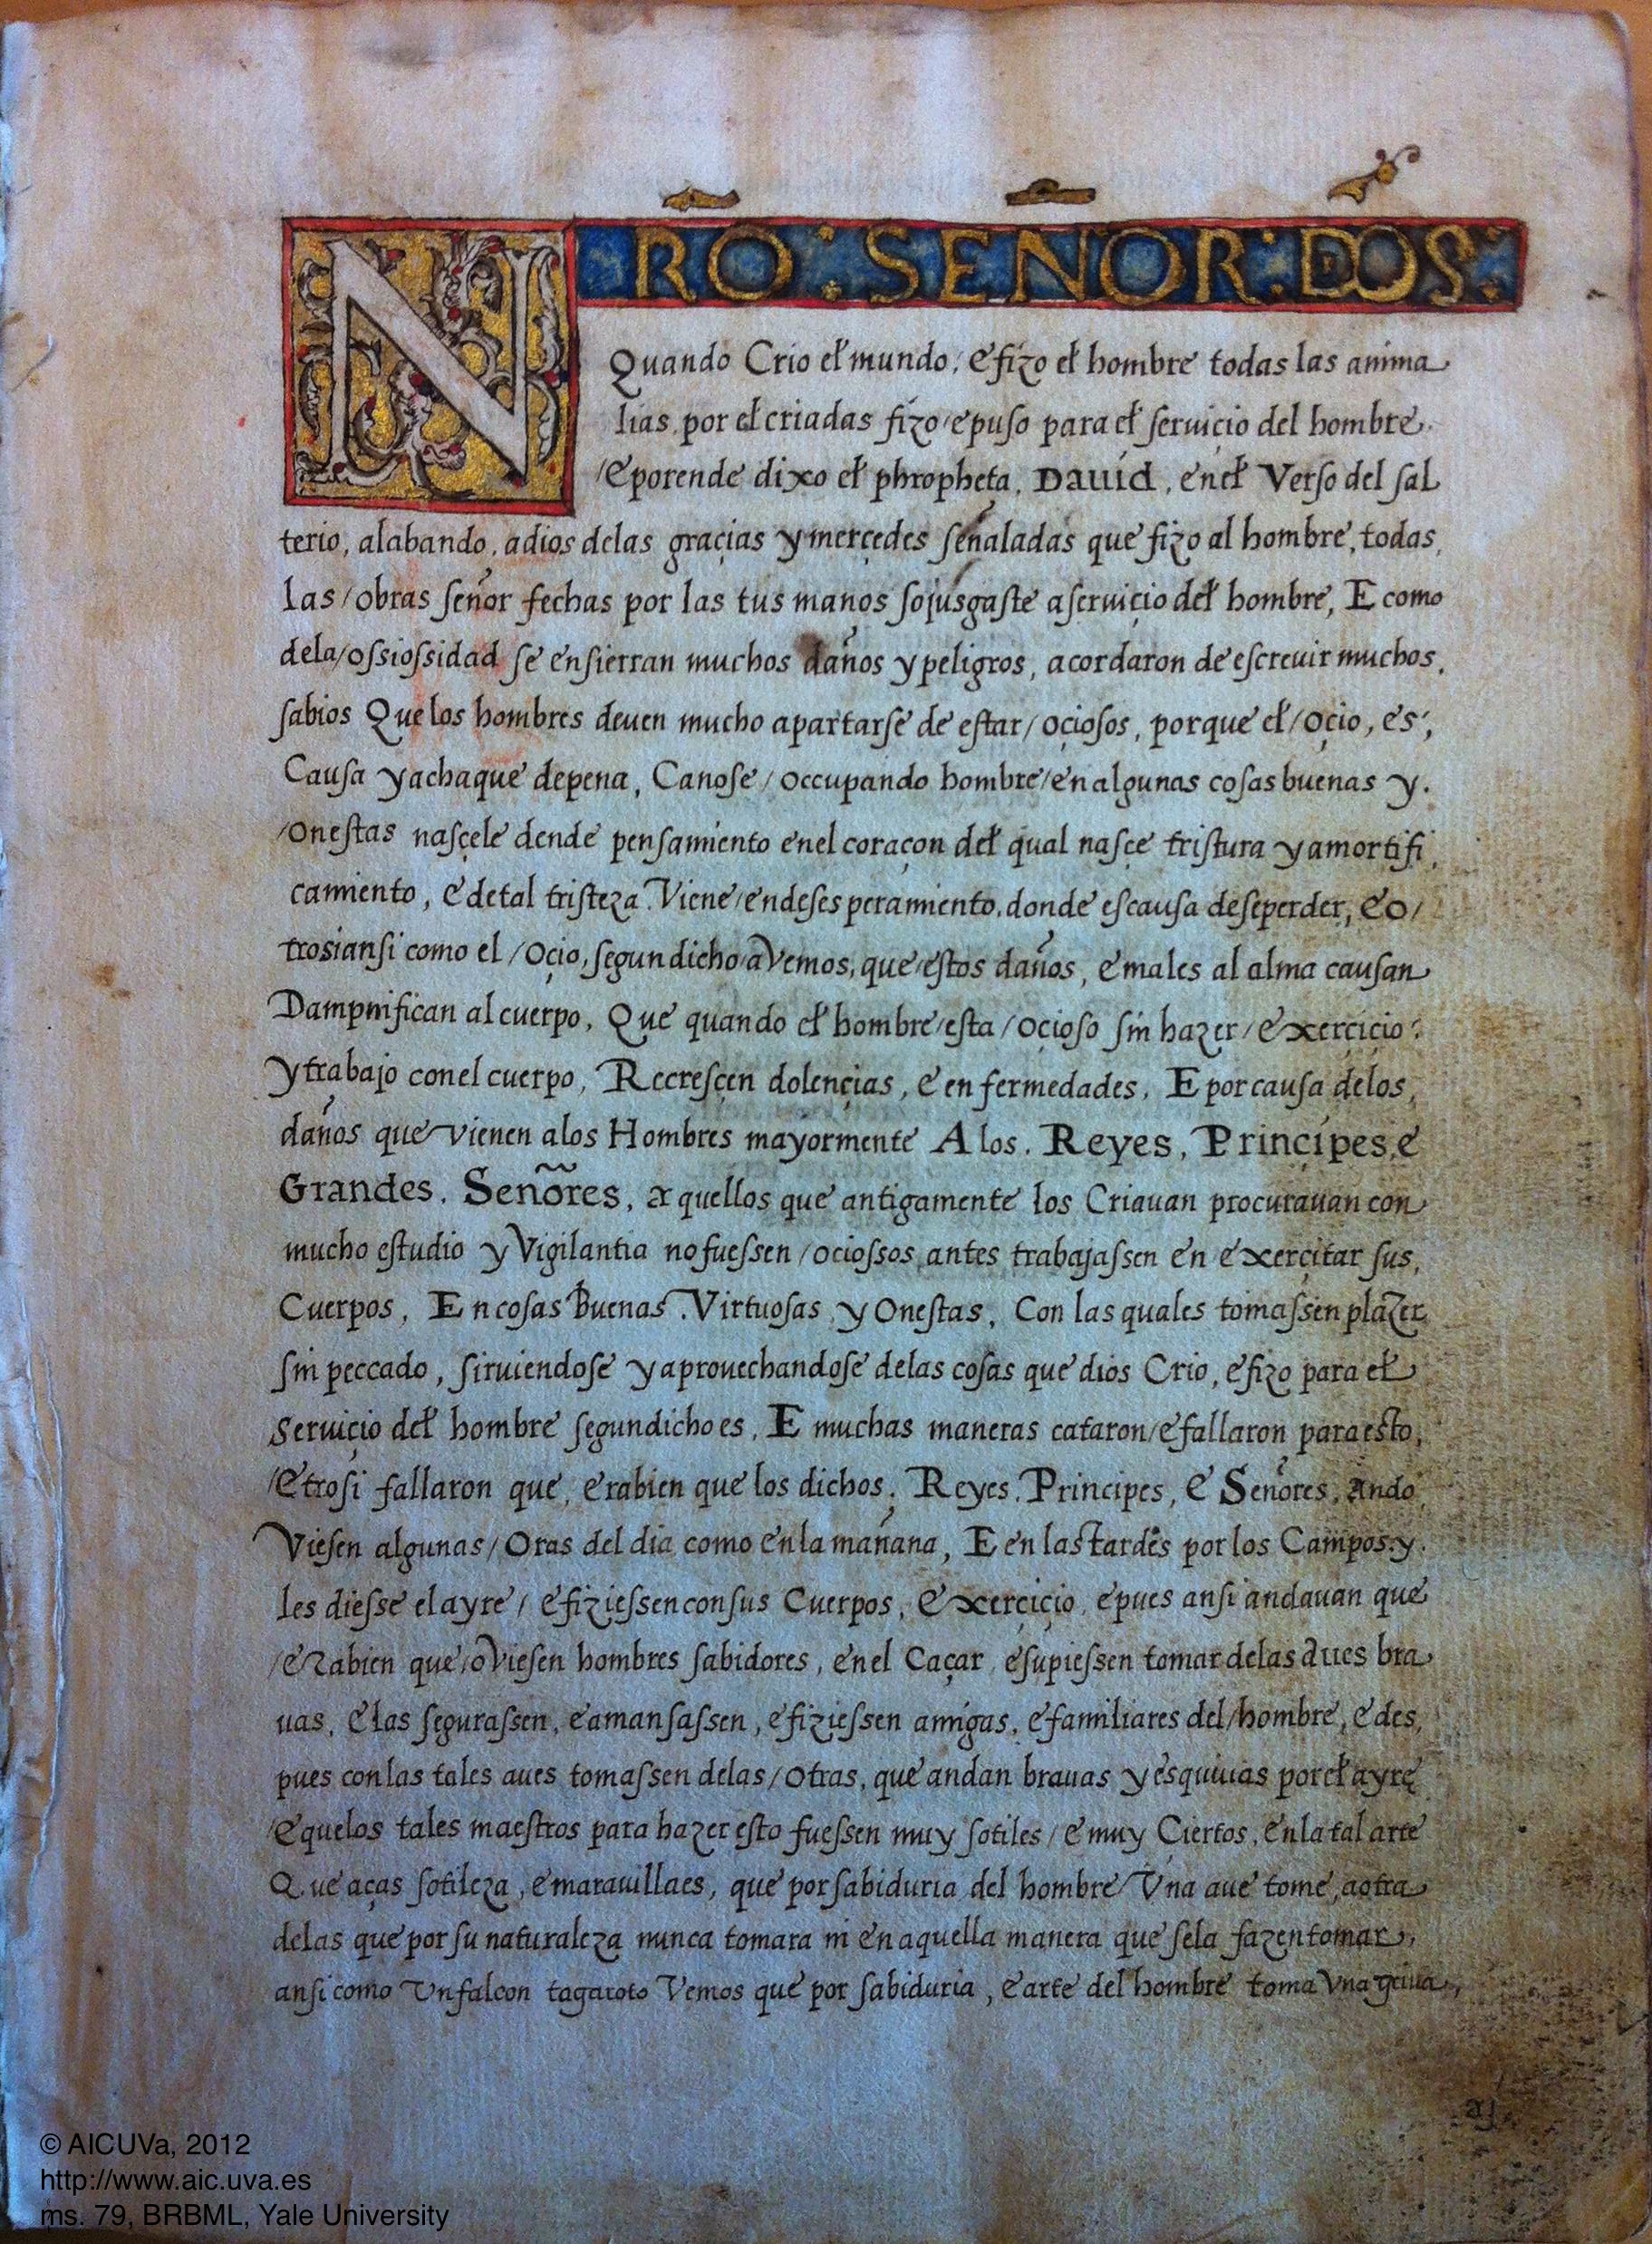 NRO · SEÑOR · DIOS ·
Quando Crio el mundo, e fizo el hombre todas las anima
lias, por el criadas fizo / e puso para el seruiçio del hombre.
/ E porende dixo el phropheta, Dauid, enel Verso del sal
terio, alabando, adios delas graçias y merçedes señaladas que fizo al hombre, todas,
las / obras señor fechas por las tus manos sojusgaste aseruiçio del hombre, E como
dela / ossiossidad se ensierran muchos daños y peligros, acordaron de escreuir muchos,
sabios Que los hombres deuen mucho apartarse de estar / oçiosos, porque el / oçio, es,
Causa y achaque depena, Canose / occupando hombre / en algunas cosas buenas y.
/ onestas nasçele dende pensamiento enel coraçon del qual nasçe tristura y amortifi,
camiento, e detal tristeza Viene / endesesperamiento, donde escausa deseperder, e o /
trosiansi como el / oçio, segun dicho aVemos, que / estos daños, e males al alma causan
Dampnifican al cuerpo, Que quando el hombre / esta / oçioso sin hazer / exerçiçio
y trabajo conel cuerpo, Recresçen dolençias, e enfermedades, E por causa delos,
daños que vienen alos Hombres mayormente Alos, Reyes, Prinçipes, e
Grandes, Señores, aquellos que antigamente los Criauan procurauan con
mucho estudio y Vigilantia nofuessen / ociossos antes trabajassen en exerçitar sus,
Cuerpos, En cosas Buenas Virtuosas y Onestas, Con las quales tomassen plazer
sin peccado, siruiendose y aprouechandose delas cosas que dios Crio, e fizo para el
seruiçio del hombre segundicho es, E muchas maneras cataron / e fallaron para esto,
/ Etrosi fallaron que, erabien que los dichos, Reyes, Principes, e Señores, Ando
Viesen algunas / Oras del dia como enla mañana, E en las tardes por los Campos y.
les diesse el ayre / e fiziessen consus Cuerpos, Exerçiçio, e pues ansi andauan que
/ eRabien que / oViesen hombres sabidores, enel Caçar, e supiessen tomar delas aues bra
uas, e las segurassen, e amansassen, e fiziessen amigas, e familiares del / hombre, e des,
pues conlas tales aues tomassen delas / Otras, que andan brauas y esquiuas porel ayre
/ E quelos tales maestros para hazer esto fuessen muy sotiles / e muy Ciertos, enla tal arte
Que aças sotileza, e marauillaes, que por sabiduria del hombre / Vna aue tome, aotra
delas que por su naturaleza nunca tomara ni en aquella manera que sela fazen tomar,
ansi como Vnfalcon tagaroto Vemos que por sabiduria, e arte del hombre toma Vna grua,
aj
© AICUVa, 2012
http://www.aic.uva.es
ms. 79, BRBML, Yale University